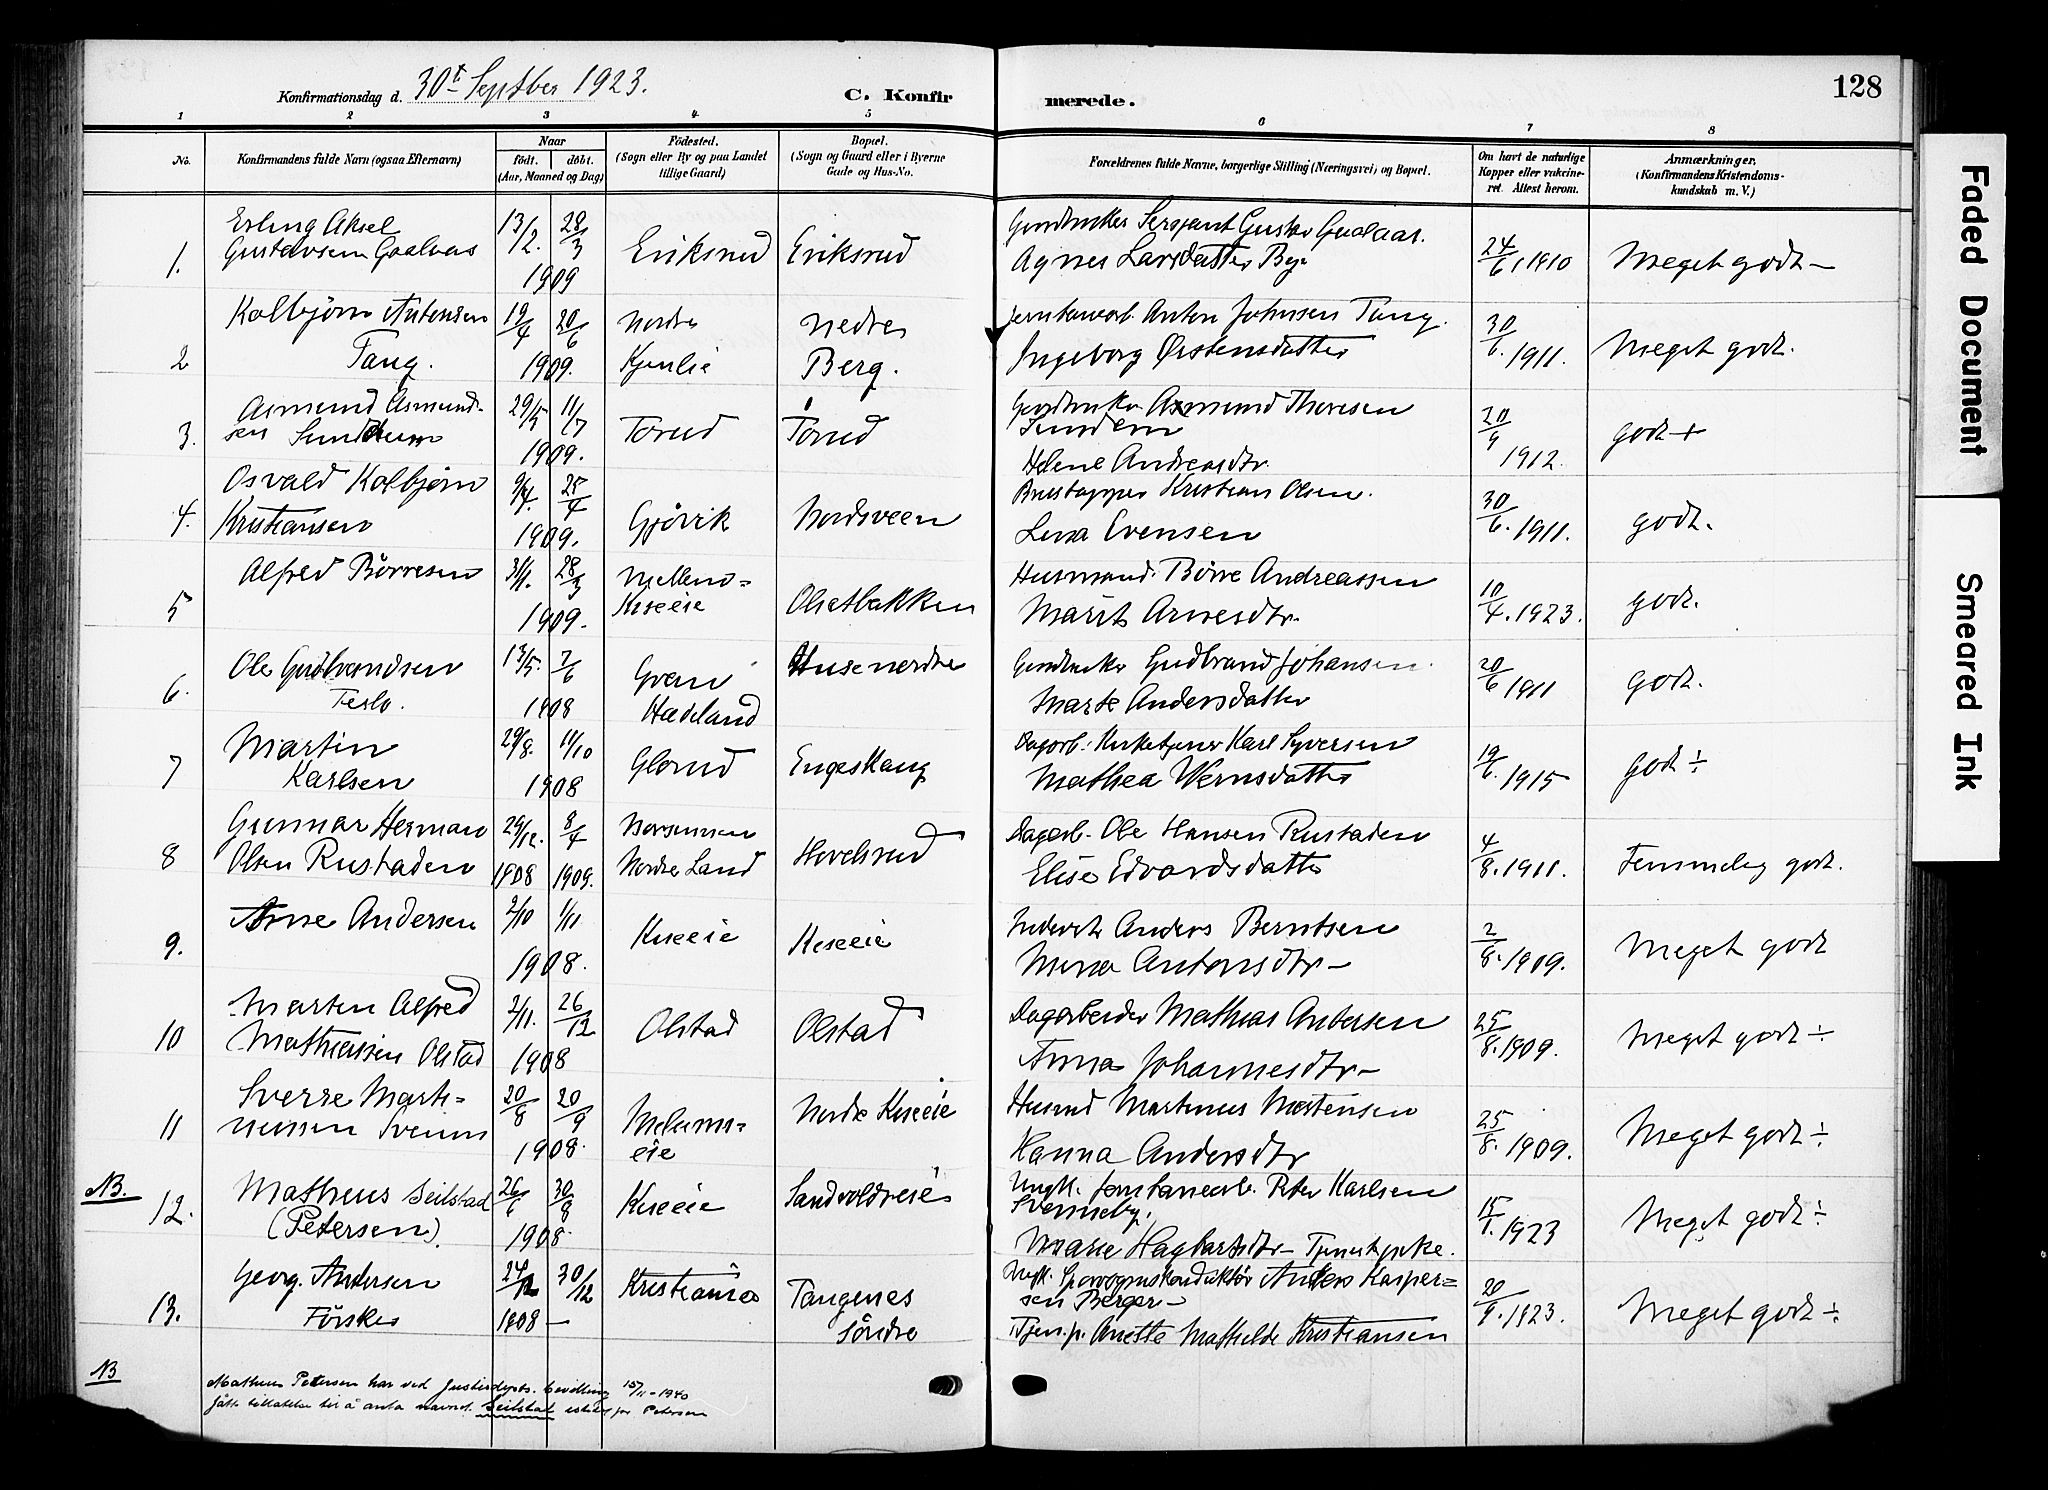 128
Konfirmationsdag d. 30t Septber 1923.
C. Konfirmerede.
1 2 3 4 5 6 7 8
No.
Konfirmandens fulde Navn (ogsaa Efternavn)
Naar
födt. döbt.
(Aar, Maaned og Dag)
Födested.
(Sogn eller By og paa Landet
tillige Gaard)
Bopæl.
(Sogn og Gaard eller i Byerne
Gade og Hus-No.
Forældrenes fulde Navne, borgerlige Stilling (Næringsvei) og Bopæl.
Om havt de naturlige
Kopper eller vakcine-
ret. Attest herom.
Anmærkninger.
(Konfirmandens Kristendoms-
kundskab m. V.)
1. Erling Aksel
Gustavsen 13/2. 28/3 1909 Eriksrud Eriksrud
Sersjant Gustav
Agnes Larsdatter 24/6, 1910 Meget godt —
2 Kolbjörn Antonsen
Tang. 19/4 20/6 1909. Nordre
Nedre
Berg.
Anton Johnsen Tang.
Ingeborg Østensdatter 30/6. 1911. Meget godt.
3. Asmund Asmund-
sen 29/5 11/7 1909. Torud Torud
Gaardbruker Asmund Thoresen
Helene Andreasdtr. 20/9 1912. godt +
4. Osvald Kolbjörn
Kristiansen 9/4. 25/4 1909. Gjövik Nordsveen
Kristian Olsen.
Lina Evensen 30/6. 1911. godt.
5 Alfred Börresen 31/1. 28/3 1909. Mellem-
Kiseeie Olsetbakken
Husmand. Börre Andreassen
Marit Arnesdtr. 10/4. 1923. godt.
6. Ole Gudbrandsen
Teslo. 13/5. 7/6 1908 Gran
Hadeland Huse nordre
Gaardbruker Gudbrand Johansen.
Marte Andersdatter 20/6 1911 godt.
7 Martin
Karlsen 29/8. 11/10 1908 Glorud Engeskaug
Dagarb. Kirketjener Karl Syversen
Mathea 19/6. 1915 godt ÷
8 Gunnar Herman
Olsen Rustaden 29/12. 8/4 1908 1909.
Nordre Land Hovelsrud
Dagarb. Ole Hansen Rustaden
Elise Edvardsdatter 4/8. 1911. Temmelig godt.
9. Arne Andersen 2/10 1/11 1908. Kiseeie Kiseeie
Anders Berntsen
Mina Antonsdtr — 2/8. 1909. Meget godt
10 Martin Alfred
Mathiassen Olstad 2/11. 26/12 1908 Olstad Olstad
Dagarbeider Mathias Andersen
Anna Johannesdtr — 25/8. 1909. Meget godt ÷
11 Sverre Marti-
nussen 20/8 20/9 1908. Melums-
eie Nordre Kiseeie
Husmd Martinus Mortensen
Hanna Andersdtr 25/8. 1909. Meget godt ÷
NB.
12. Matheus Seilstad
(Petersen). 26/6 30/8 1908. Kiseeie Sandvoldseie
Ungk. Jernbanearb. Peter Karlsen
Marie Hagbartsdtr — Tjenestepike. 15/1. 1923 Meget godt ÷
13. Georg Andersen
24/12 30/12 1908 — Kristiania Tangenes
Söndre
Ungk. Sporvognskonduktör Anders Kasper-
sen Berger —
Tjen.p. Anette Mathilde Kristiansen 20/9. 1923. Meget godt ÷
NB
Matheus Petersen har ved Justisdepts. bevilling 15/11-1940
fått tillatelse til å anta navnet Seilstad istedet for Petersen
Faded Document
Smeared Ink